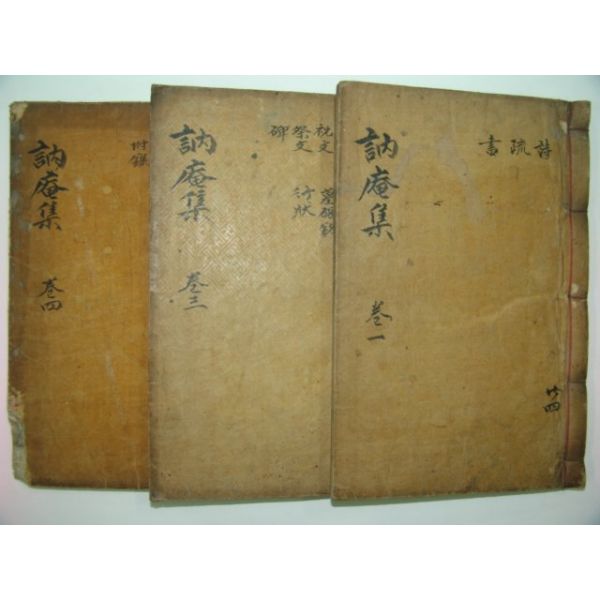 詩
疏
書
訥庵集 卷一
共四
祝文
祭文 行狀
碑
訥庵集 卷三
附錄
訥庵集 卷四